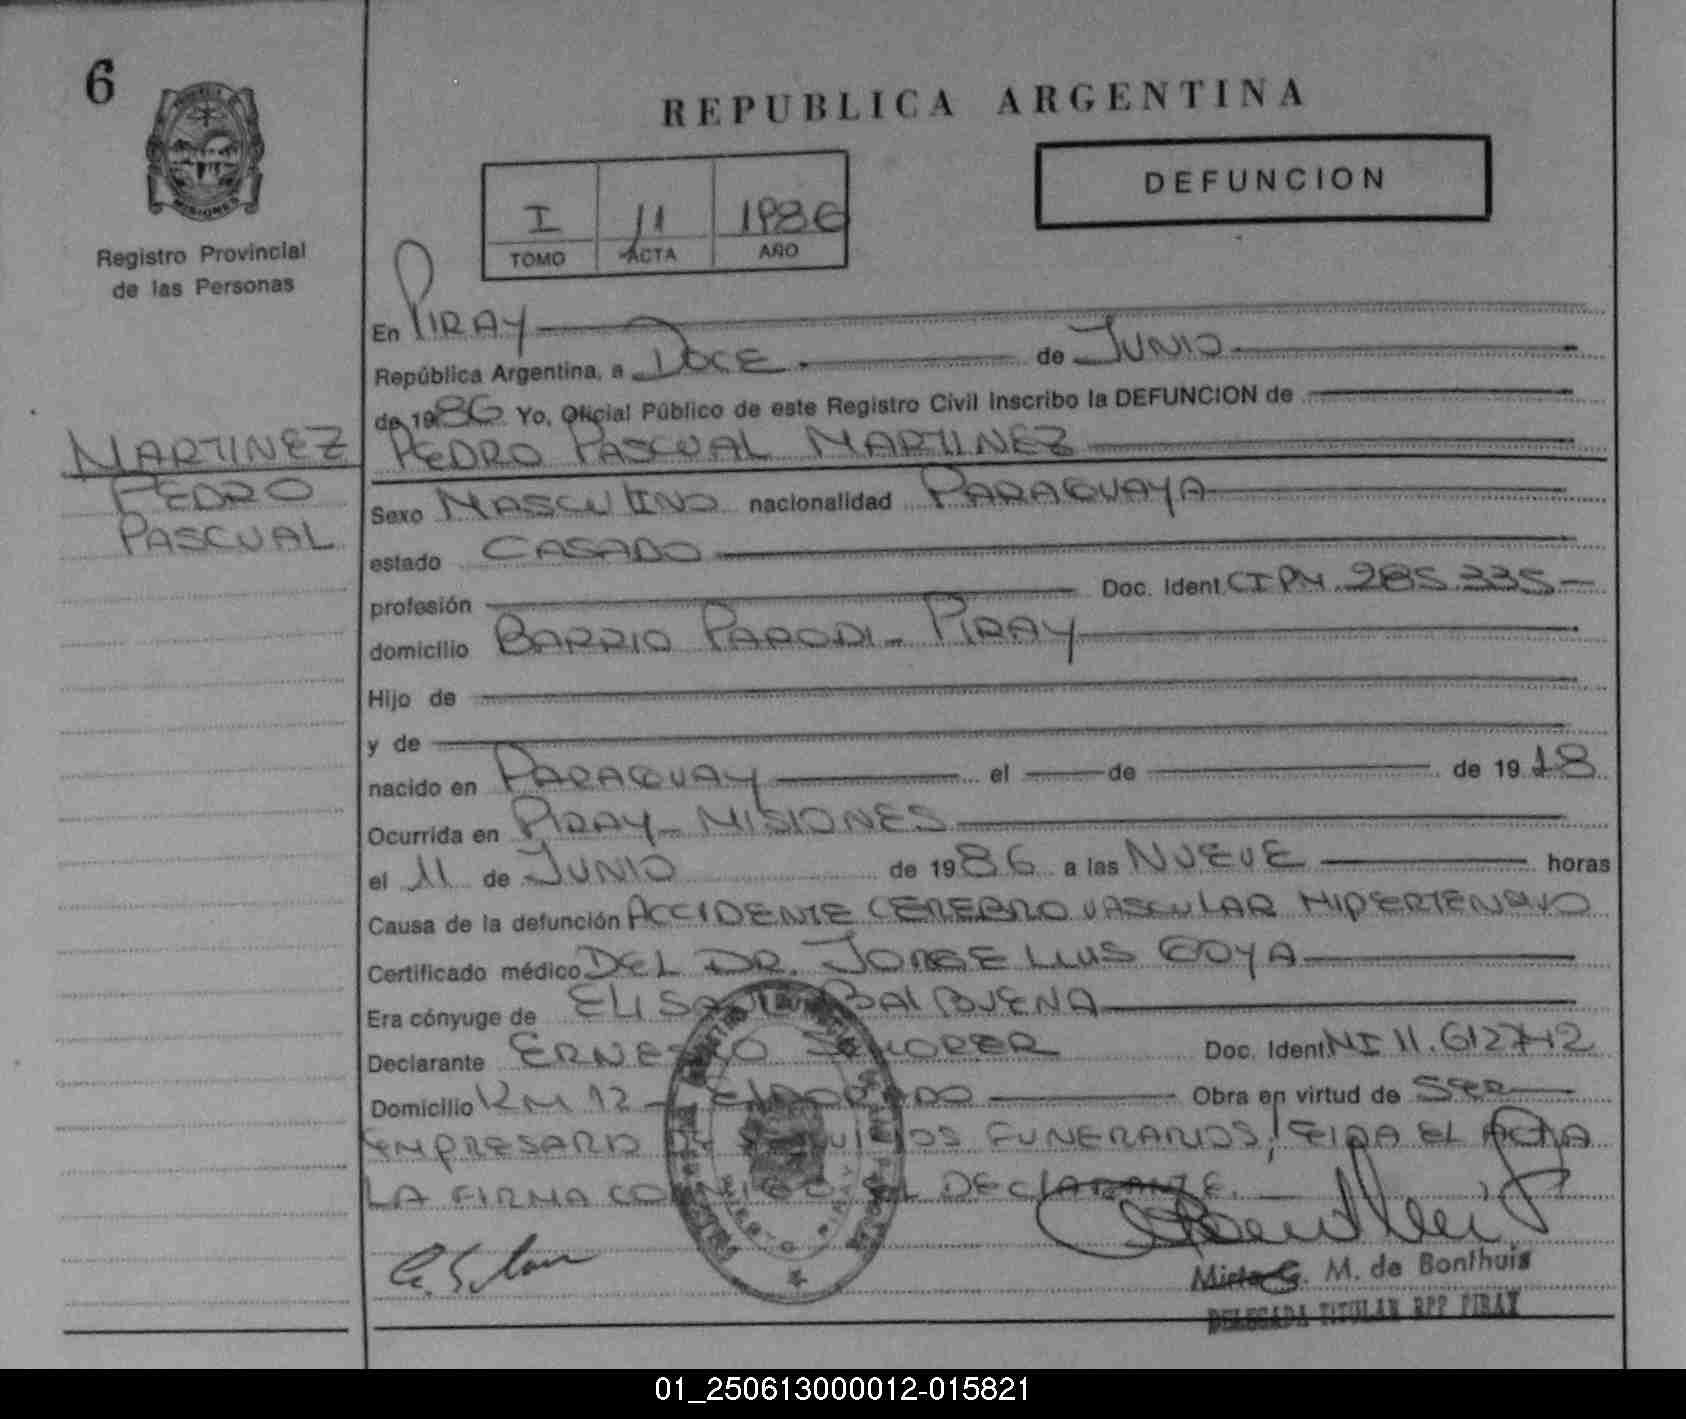 6
REPUBLICA ARGENTINA
DEFUNCION
I 11 1986
TOMO ACTA AÑO
MISIONES
Registro Provincial
de las Personas
En PIRAY
República Argentina, a DOCE de JUNIO
de 1986 Yo, Oficial Público de este Registro Civil inscribo la DEFUNCION de
MARTINEZ
PEDRO
PASCUAL
PEDRO PASCUAL MARTINEZ
Sexo MASCULINO nacionalidad PARAGUAYA
estado CASADO
profesión Doc. Ident CIPM 285.335
domicilio BARRIO PARODI - PIRAY
Hijo de
y de
nacido en PARAGUAY el de de 1918
Ocurrida en PIRAY - MISIONES
el 11 de JUNIO de 1986 a las NUEVE horas
Causa de la defunción ACCIDENTE CEREBRO VASCULAR HIPERTENSIVO
Certificado médico DEL DR. JORGE LUIS GOYA
Era cónyuge de BALBUENA
Declarante ERNESTO Doc. Ident NI 11.612742
Domicilio KM 12 - ELDORADO Obra en virtud de SER
EMPRESARIO DE SERVICIOS FUNERARIOS, EL ACTA
LA FIRMA CONMIGO EL DECLARANTE.
M. de Bonthuis
DELEGADA TITULAR RPP PIRAY
01_250613000012-015821